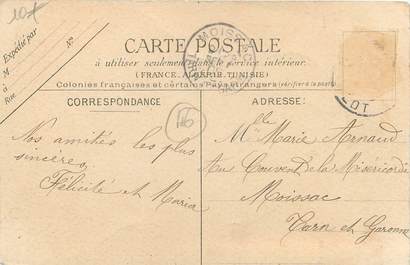 10f
Expédié par
M
à
Rue
N°
MOISSAC
CARTE POSTALE
à utiliser seulement dans le service intérieur.
(FRANCE, ALGÉRIE, TUNISIE)
Colonies françaises et certains Pays étrangers (vérifier à la poste).
LOT
CORRESPONDANCE
ADRESSE:
Nos amitiés les plus
sincères,
Félicité et Maria
Mlle Marie Arnaud
Au Couvent de la Miséricorde
Moissac
Tarn et Garonne